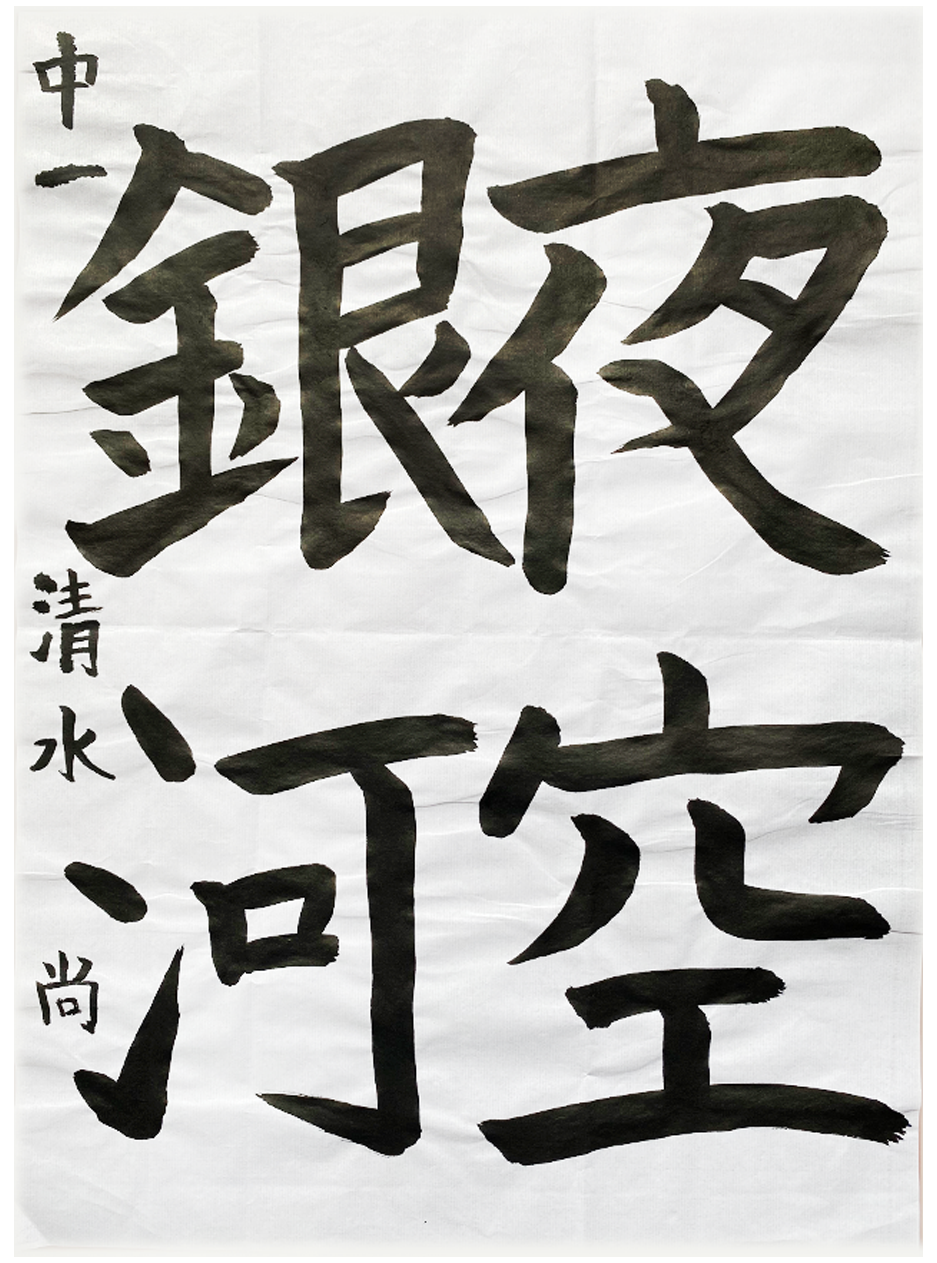 夜空
銀河
中一 清水 尚